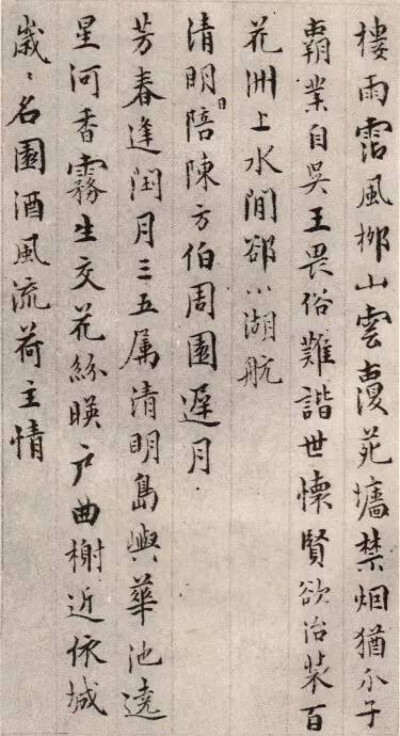 樓雨霑風栁山雲覆苑墻禁烟猶介子
霸業自吳王畏俗難諧世懷賢欲治裝百
花洲上水閒郤小湖航
清明日陪陳方伯周園遲月
芳春逢閏月三五属清明島嶼華池遶
星河香霧生交花絲暎户曲榭近依城
歲〻名園酒風流荷主情